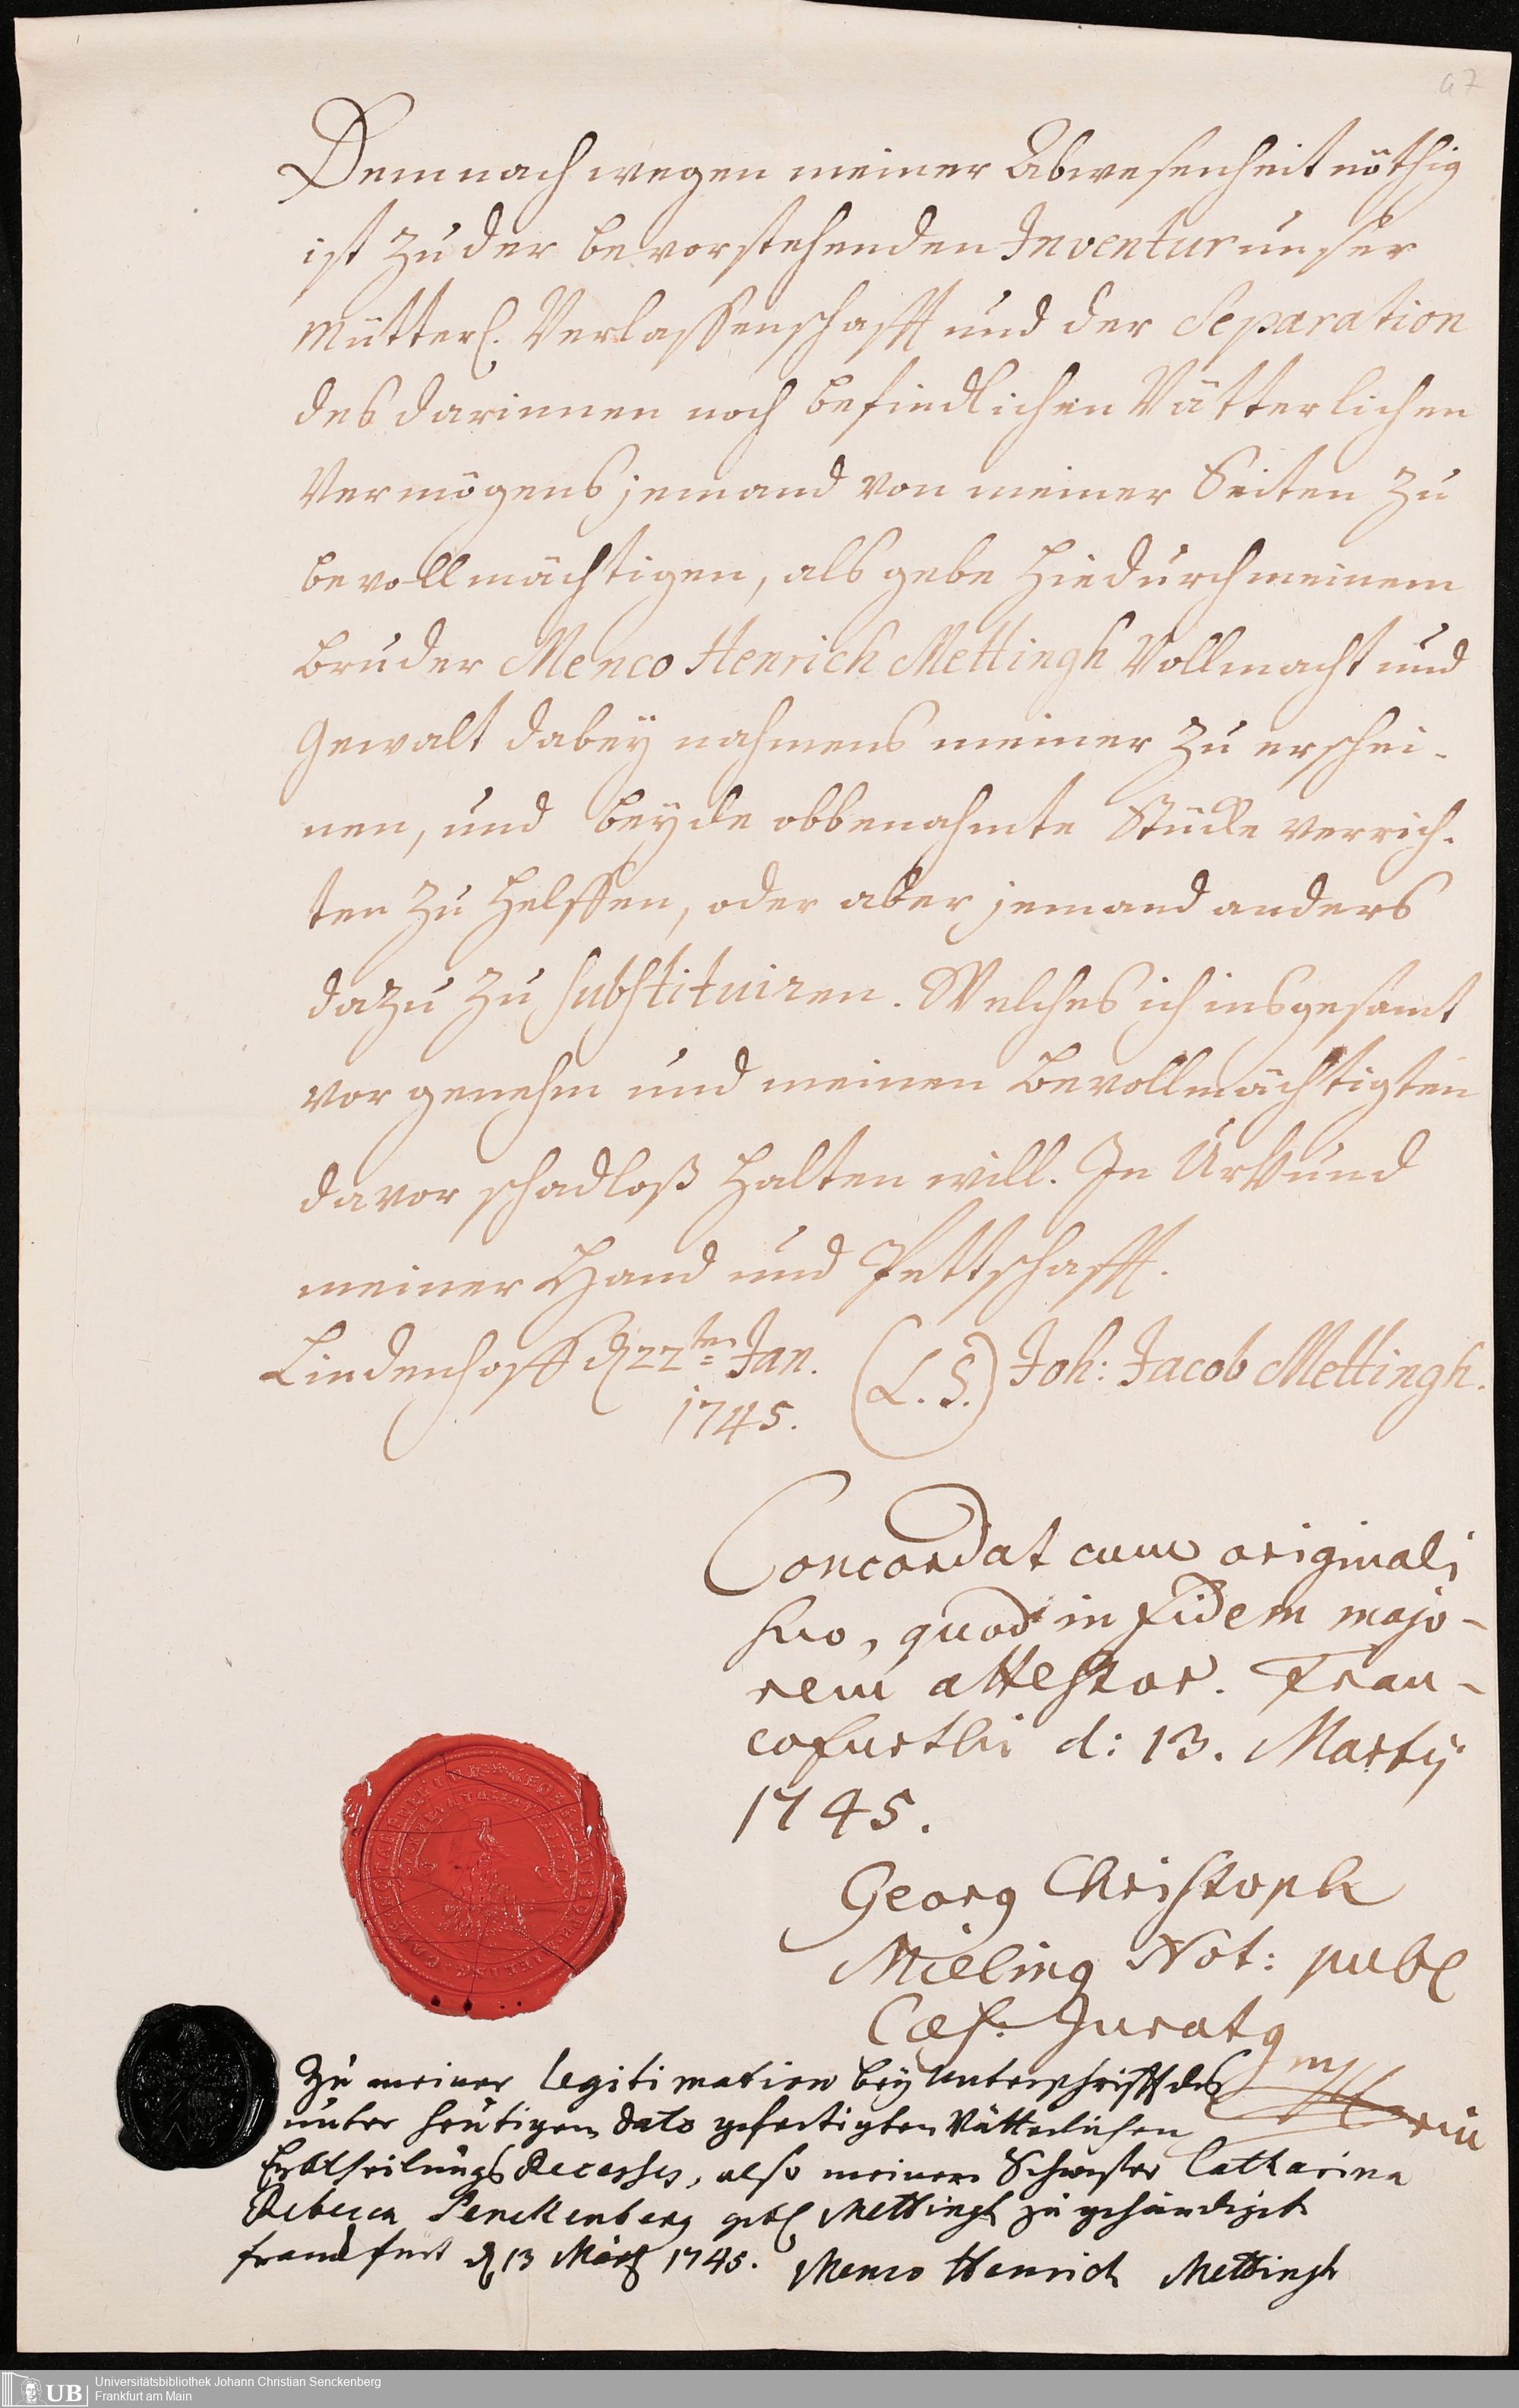 47
Demnach wegen meiner Abwesenheit nöthig
ist zu der bevorstehenden Inventur unser
Mütterl. Verlassenschafft und der Separation
des darinnen noch befindlichen Vätterlichen
Vermögens jemand von meiner Seiten zu
bevollmächtigen, als gebe hiedurch meinem
Bruder Menco Henrich Mettingh Vollmacht und
Gewalt dabeÿ nahmens meiner zu erschei-
nen, und beÿde obbenahmte Stücke verrich-
ten zu helffen, oder aber jemand anders
dazu zu substituiren. Welches ich insgesamt
vor genehm und meinen Bevollmächtigten
davor schadloß halten will. In Urkund
meiner Hand und Pettschafft.
Lindenhoff d 22ten Jan. (L. S.) Joh: Jacob Mettingh.
1745.
Concordat cum originali
suo, quod in fidem majo-
rem attestor. Fran-
cofurthi d: 13. Martij
1745.
Georg Christoph
Mieling Not: publ
Cæs. Juratq
mppria
Zu meiner legitimation beÿ unterschrifft des
unter heutigem dato gefertigten Vätterlichen
Erbtheilungs Recesses, also meiner Schwester Catharina
Rebecca Senckenberg gebl Mettingh zu gehändiget
franckfurt d 13 Märtz 1745. Menco Henrich Mettingh
UB
Universitätsbibliothek Johann Christian Senckenberg
Frankfurt am Main